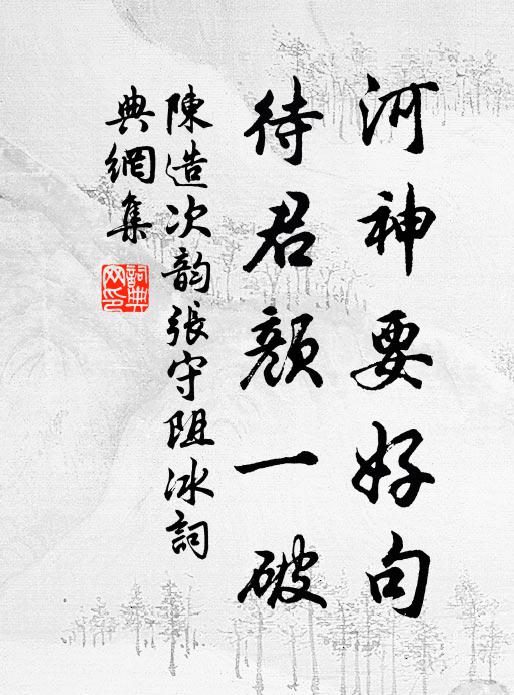 河神要好句
待君顏一破
陳造次韵張守阻冰詞
典網集
詞典网印